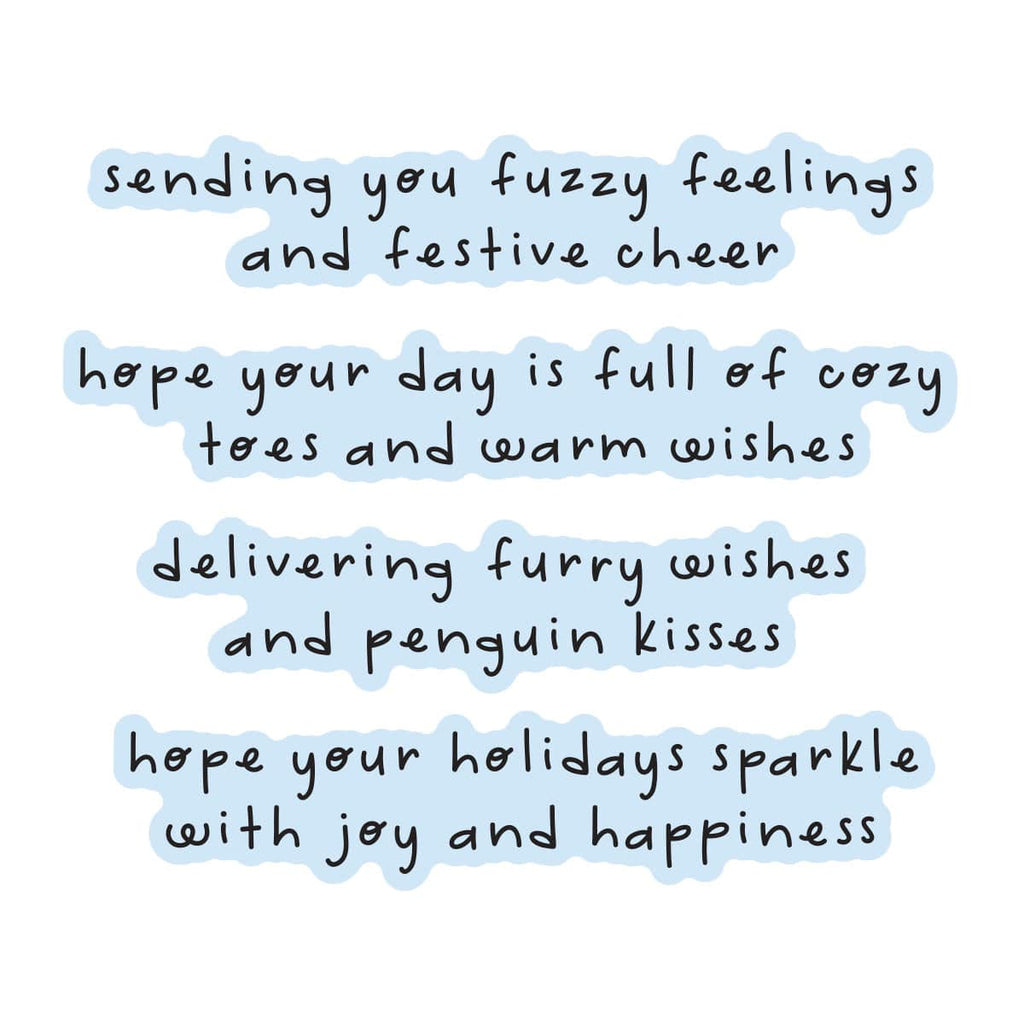 sending you fuzzy feelings
and festive cheer
hope your day is full of cozy
toes and warm wishes
delivering furry wishes
and penguin kisses
hope your holidays sparkle
with joy and happiness